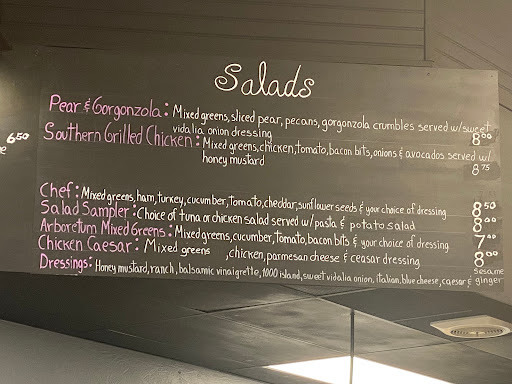 Salads
Pear & Gorgonzola: Mixed greens, sliced pear, pecans, gorgonzola crumbles served w/ sweet
vidalia onion dressing 8⁰⁰
6⁵⁰
Southern Grilled Chicken: Mixed greens, chicken, tomato, bacon bits, onions & avocados served w/
honey mustard 8⁷⁵
Chef: Mixed greens, ham, turkey, cucumber, tomato, cheddar, sunflower seeds & your choice of dressing 8⁵⁰
Salad Sampler: Choice of tuna or chicken salad served w/ pasta & potato salad 8⁰⁰
Arboretum Mixed Greens: Mixed greens, cucumber, tomato, bacon bits & your choice of dressing 7⁰⁰
Chicken Caesar: Mixed greens , chicken, parmesan cheese & ceasar dressing 8⁰⁰
Dressings: Honey mustard, ranch, balsamic vinaigrette, 1000 island, sweet vidalia onion, italian, blue cheese, caesar & sesame ginger